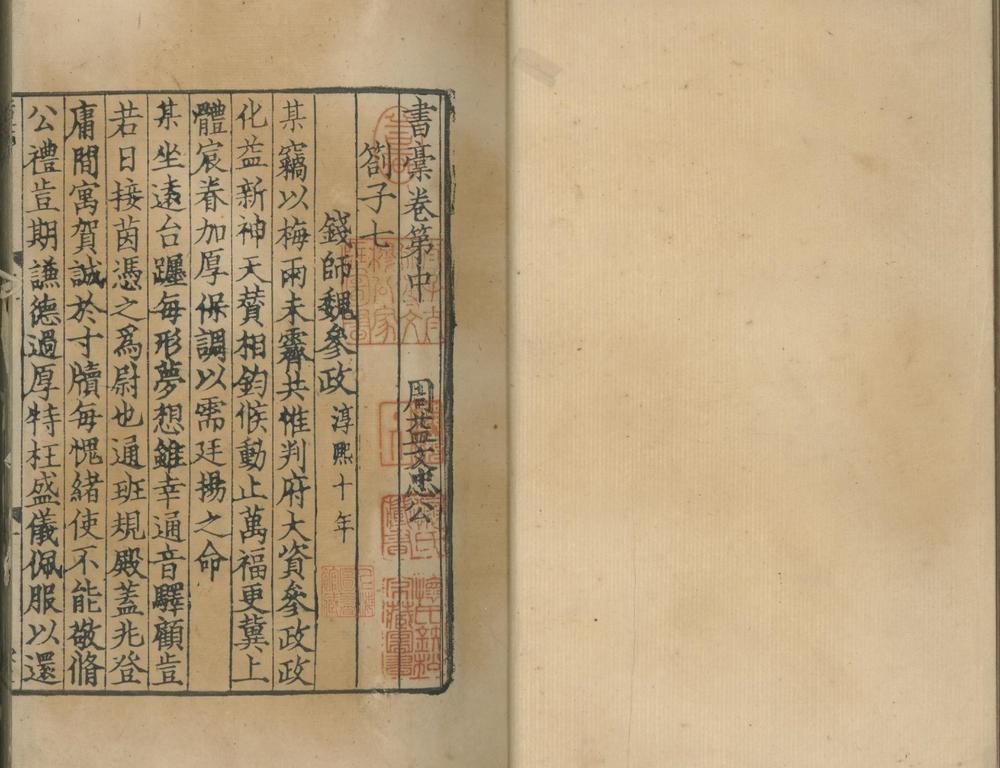 書稾卷第中 周益文忠公
劄子七
錢師魏參政 淳熙十年
某竊以梅雨未霽共惟判府大資參政政
化益新神天賛相鈞候動止萬福更冀上
體宸眷加厚保調以需廷揚之命
某坐遠台躔每形夢想雖幸通音驛顧豈
若日接茵憑之爲尉也通班規殿蓋兆登
庸閒寓賀誠於寸牘每愧緒使不能敬脩
公禮豈期謙德過厚特枉盛儀佩服以還